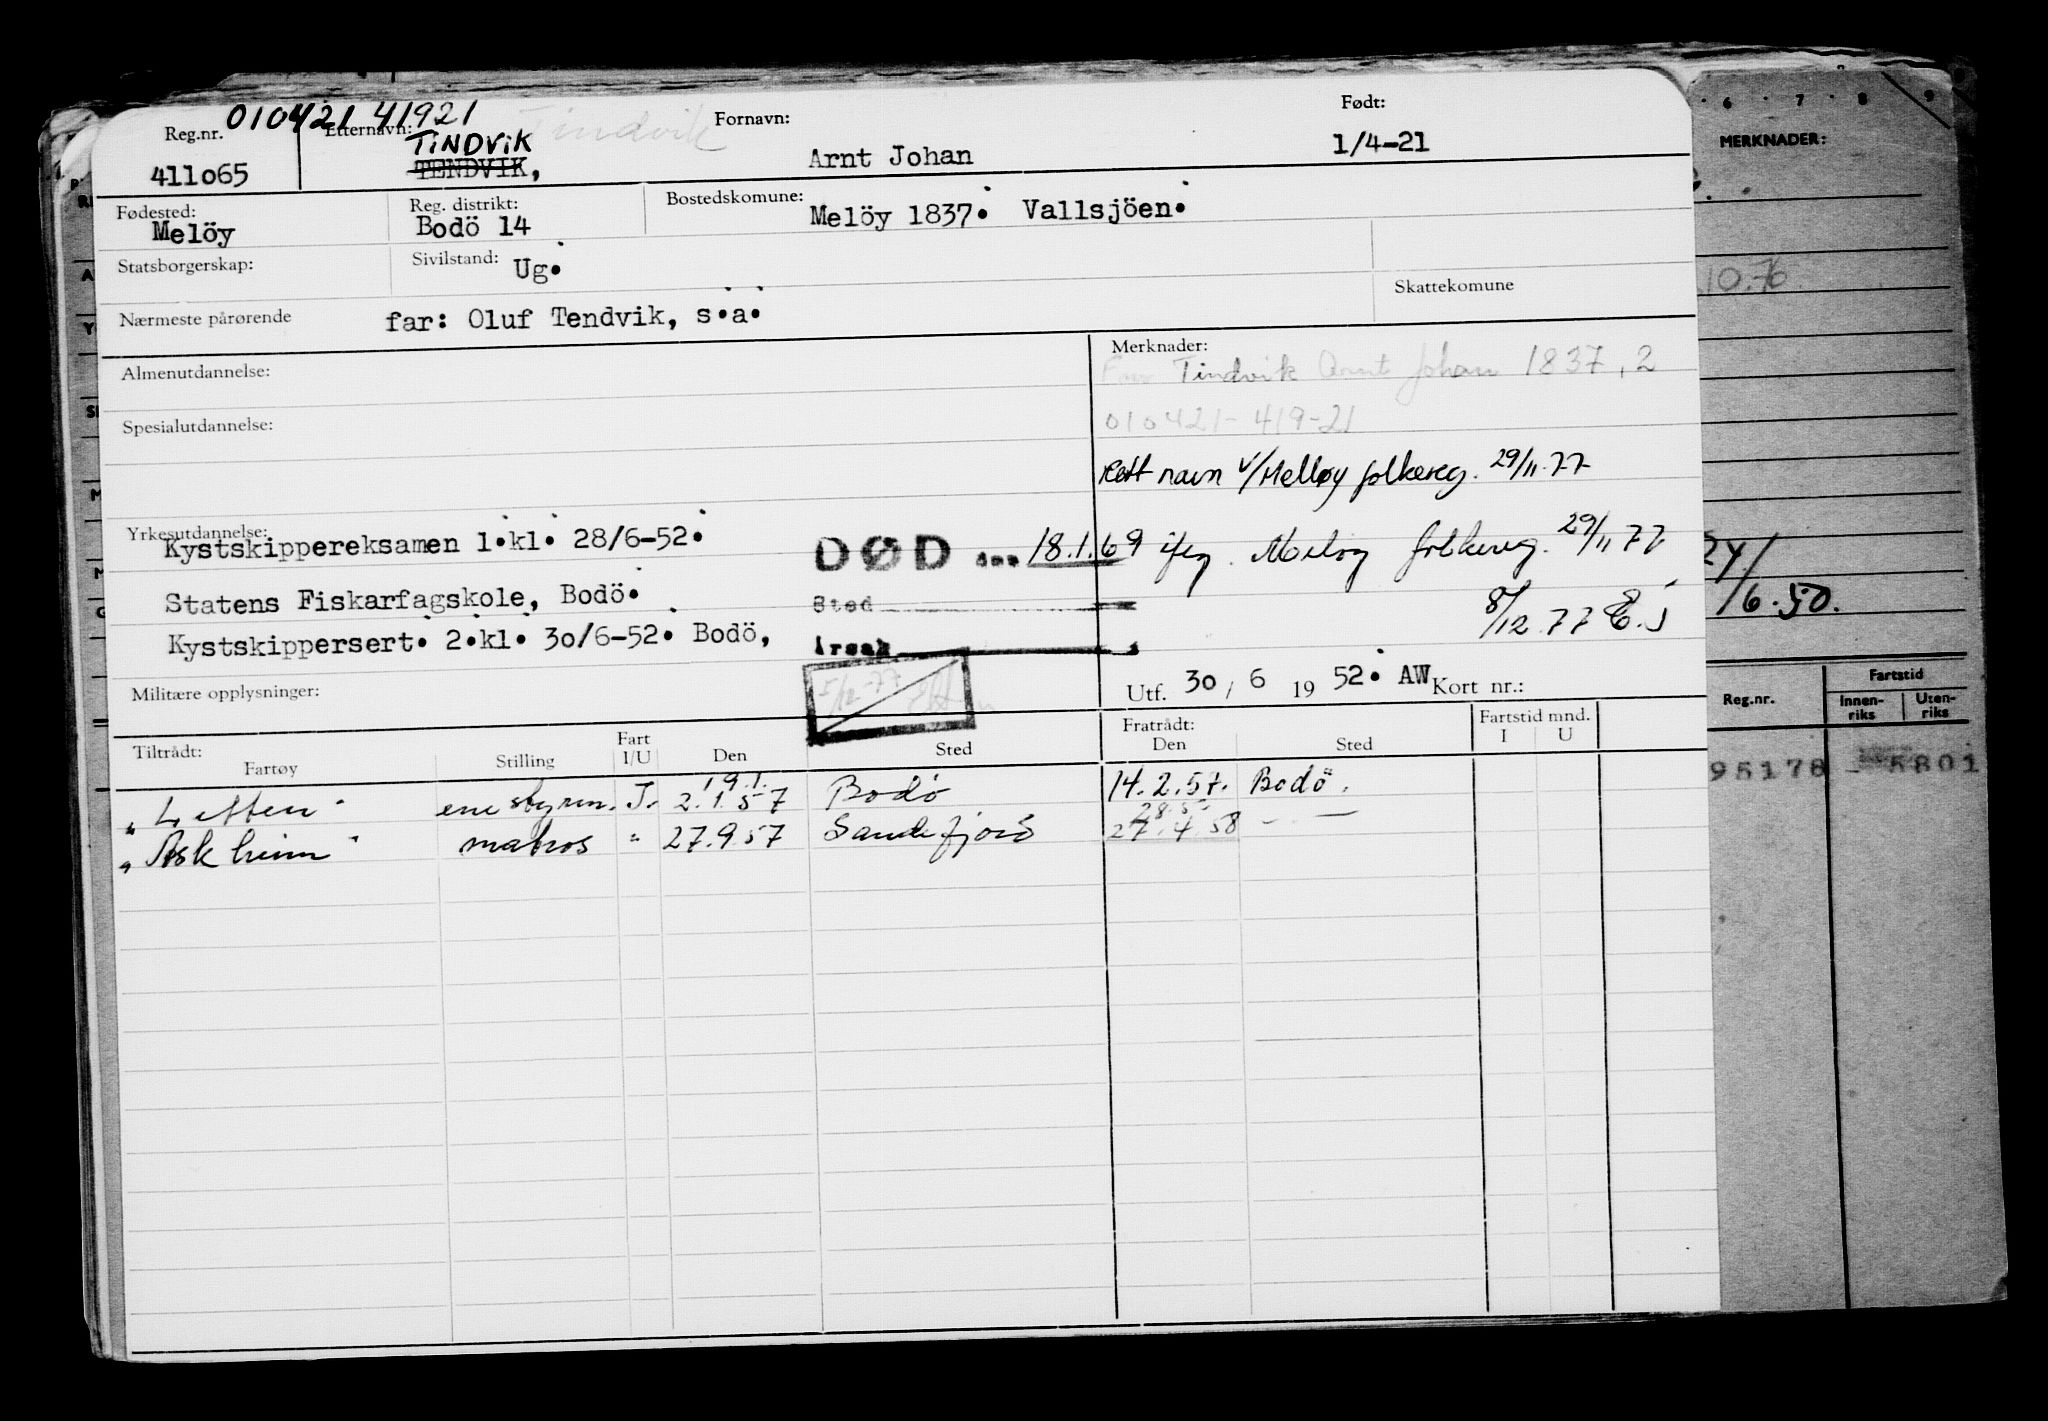 010421 41921 Tindvik
Reg.nr. Etternavn: Fornavn: Født:
TiNDViK
411o65 TENDVIK, Arnt Johan 1/4-21
Fødested: Reg. distrikt: Bostedskomune:
Melöy Bodö 14 Melöy 1837. Vallsjöen.
Statsborgerskap: Sivilstand: Ug.
Skattekomune
Nærmeste pårørende far: Oluf Tendvik, s.a.
Almenutdannelse: Merknader:
Tindvik Arnt Johan 1837, 2
Spesialutdannelse: 010421-419-21
Rett navn v/Melløy folkereg. 29/11-77
Yrkesutdannelse:
Kystskippereksamen 1.kl. 28/6-52. DØD den 18.1.69 ifлg. Meløy folkereg. 29/11 77
Statens Fiskarfagskole, Bodö. Sted 8/12 77 E.J
Kystskippersert. 2.kl. 3o/6-52. Bodö, Årsak
5/12-77
Militære opplysninger: Utf. 3o / 6 19 52. AW Kort nr.:
Tiltrådt: Fratrådt: Fartstid mnd.
Fartøy Stilling Fart I/U Den Sted Den Sted I U
19.1.
"Lotten" ene styrm. I. 2.1.57 Bodö 14.2.57. Bodö.
28.5
"Askheim" matros " 27.9.57 Sandefjord 27.4.58 - . -
6 . 7 . 8 . 9
MERKNADER:
10.76.
24/
/6.50.
Reg.nr. Fartstid
Innen-
riks Uten-
riks
95178 - 5801